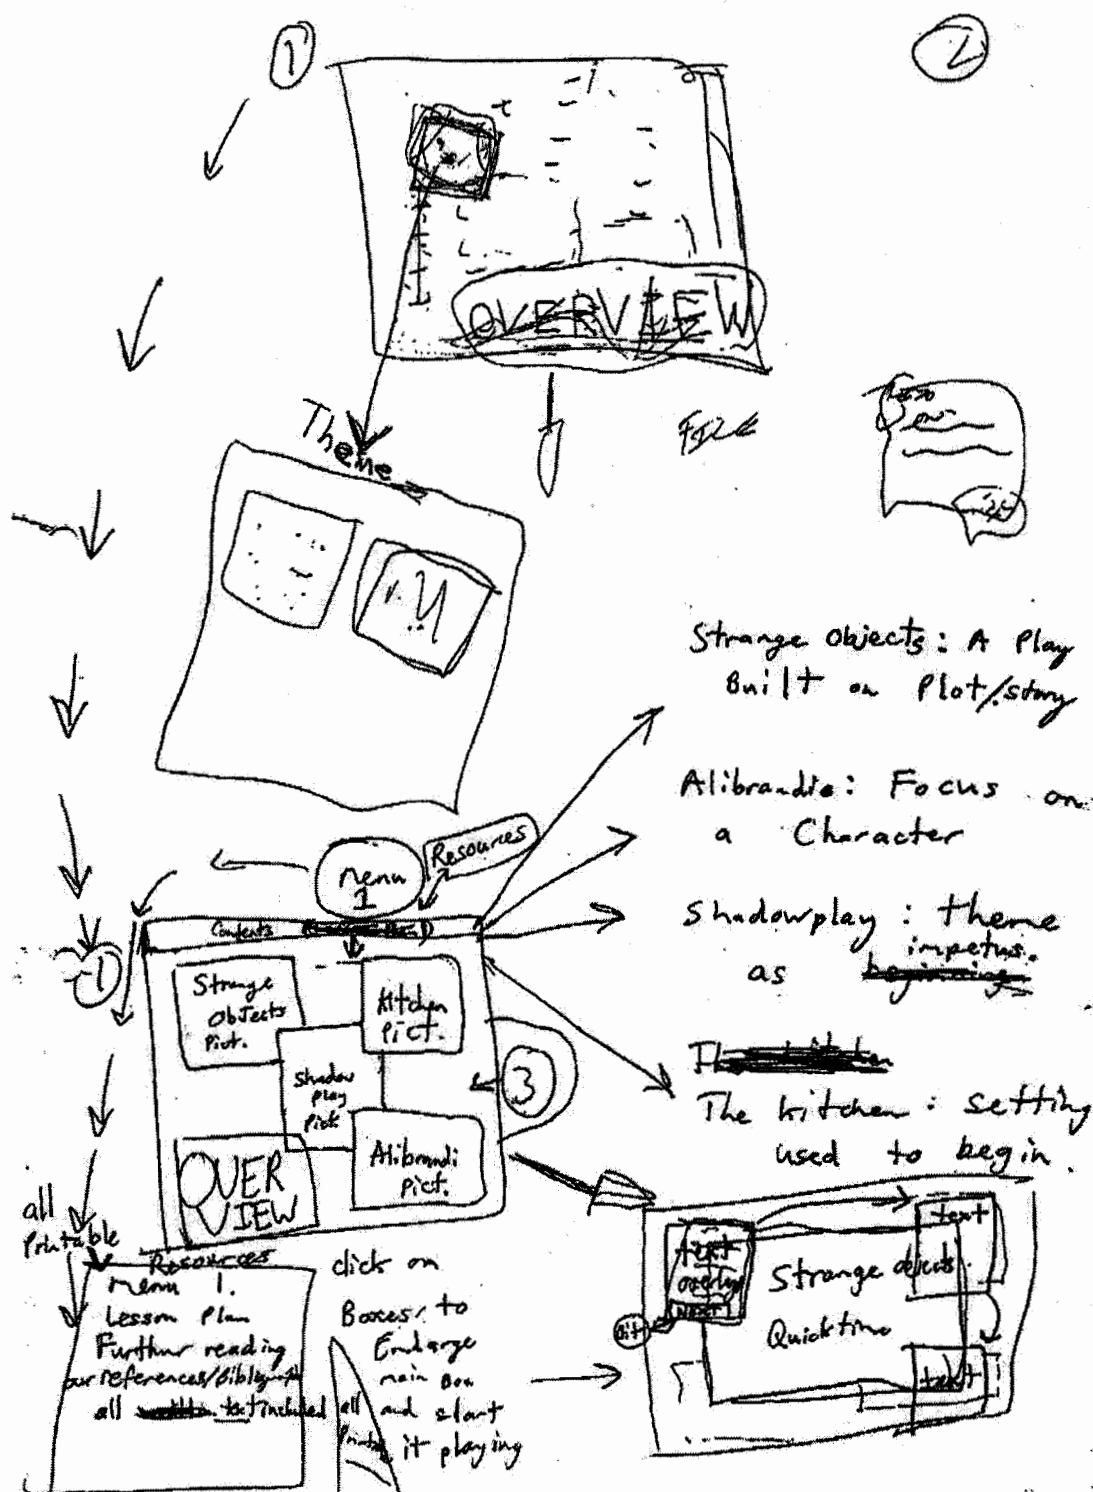 1
2
OVERVIEW
Theme
Strange Objects: A Play
Built on Plot/story
Alibrandie: Focus on
a Character
Shadowplay: theme
impetus.
as beginning
The kitchen: setting
used to begin.
Menu
1
Resources
Contents
1
Strange
Objects
Pict.
Kitchen
Pict.
Shadow
play
Pict.
3
Alibrandi
Pict.
OVER
VIEW
all
Printable
Resources
Menu 1.
Lesson Plan
Further reading
our references/Bibliograph
all text included
click on
Boxes to
Enlarge
main Box
and start
it playing
all
text
overlay
NEXT
Strange objects.
Quicktime
text
text